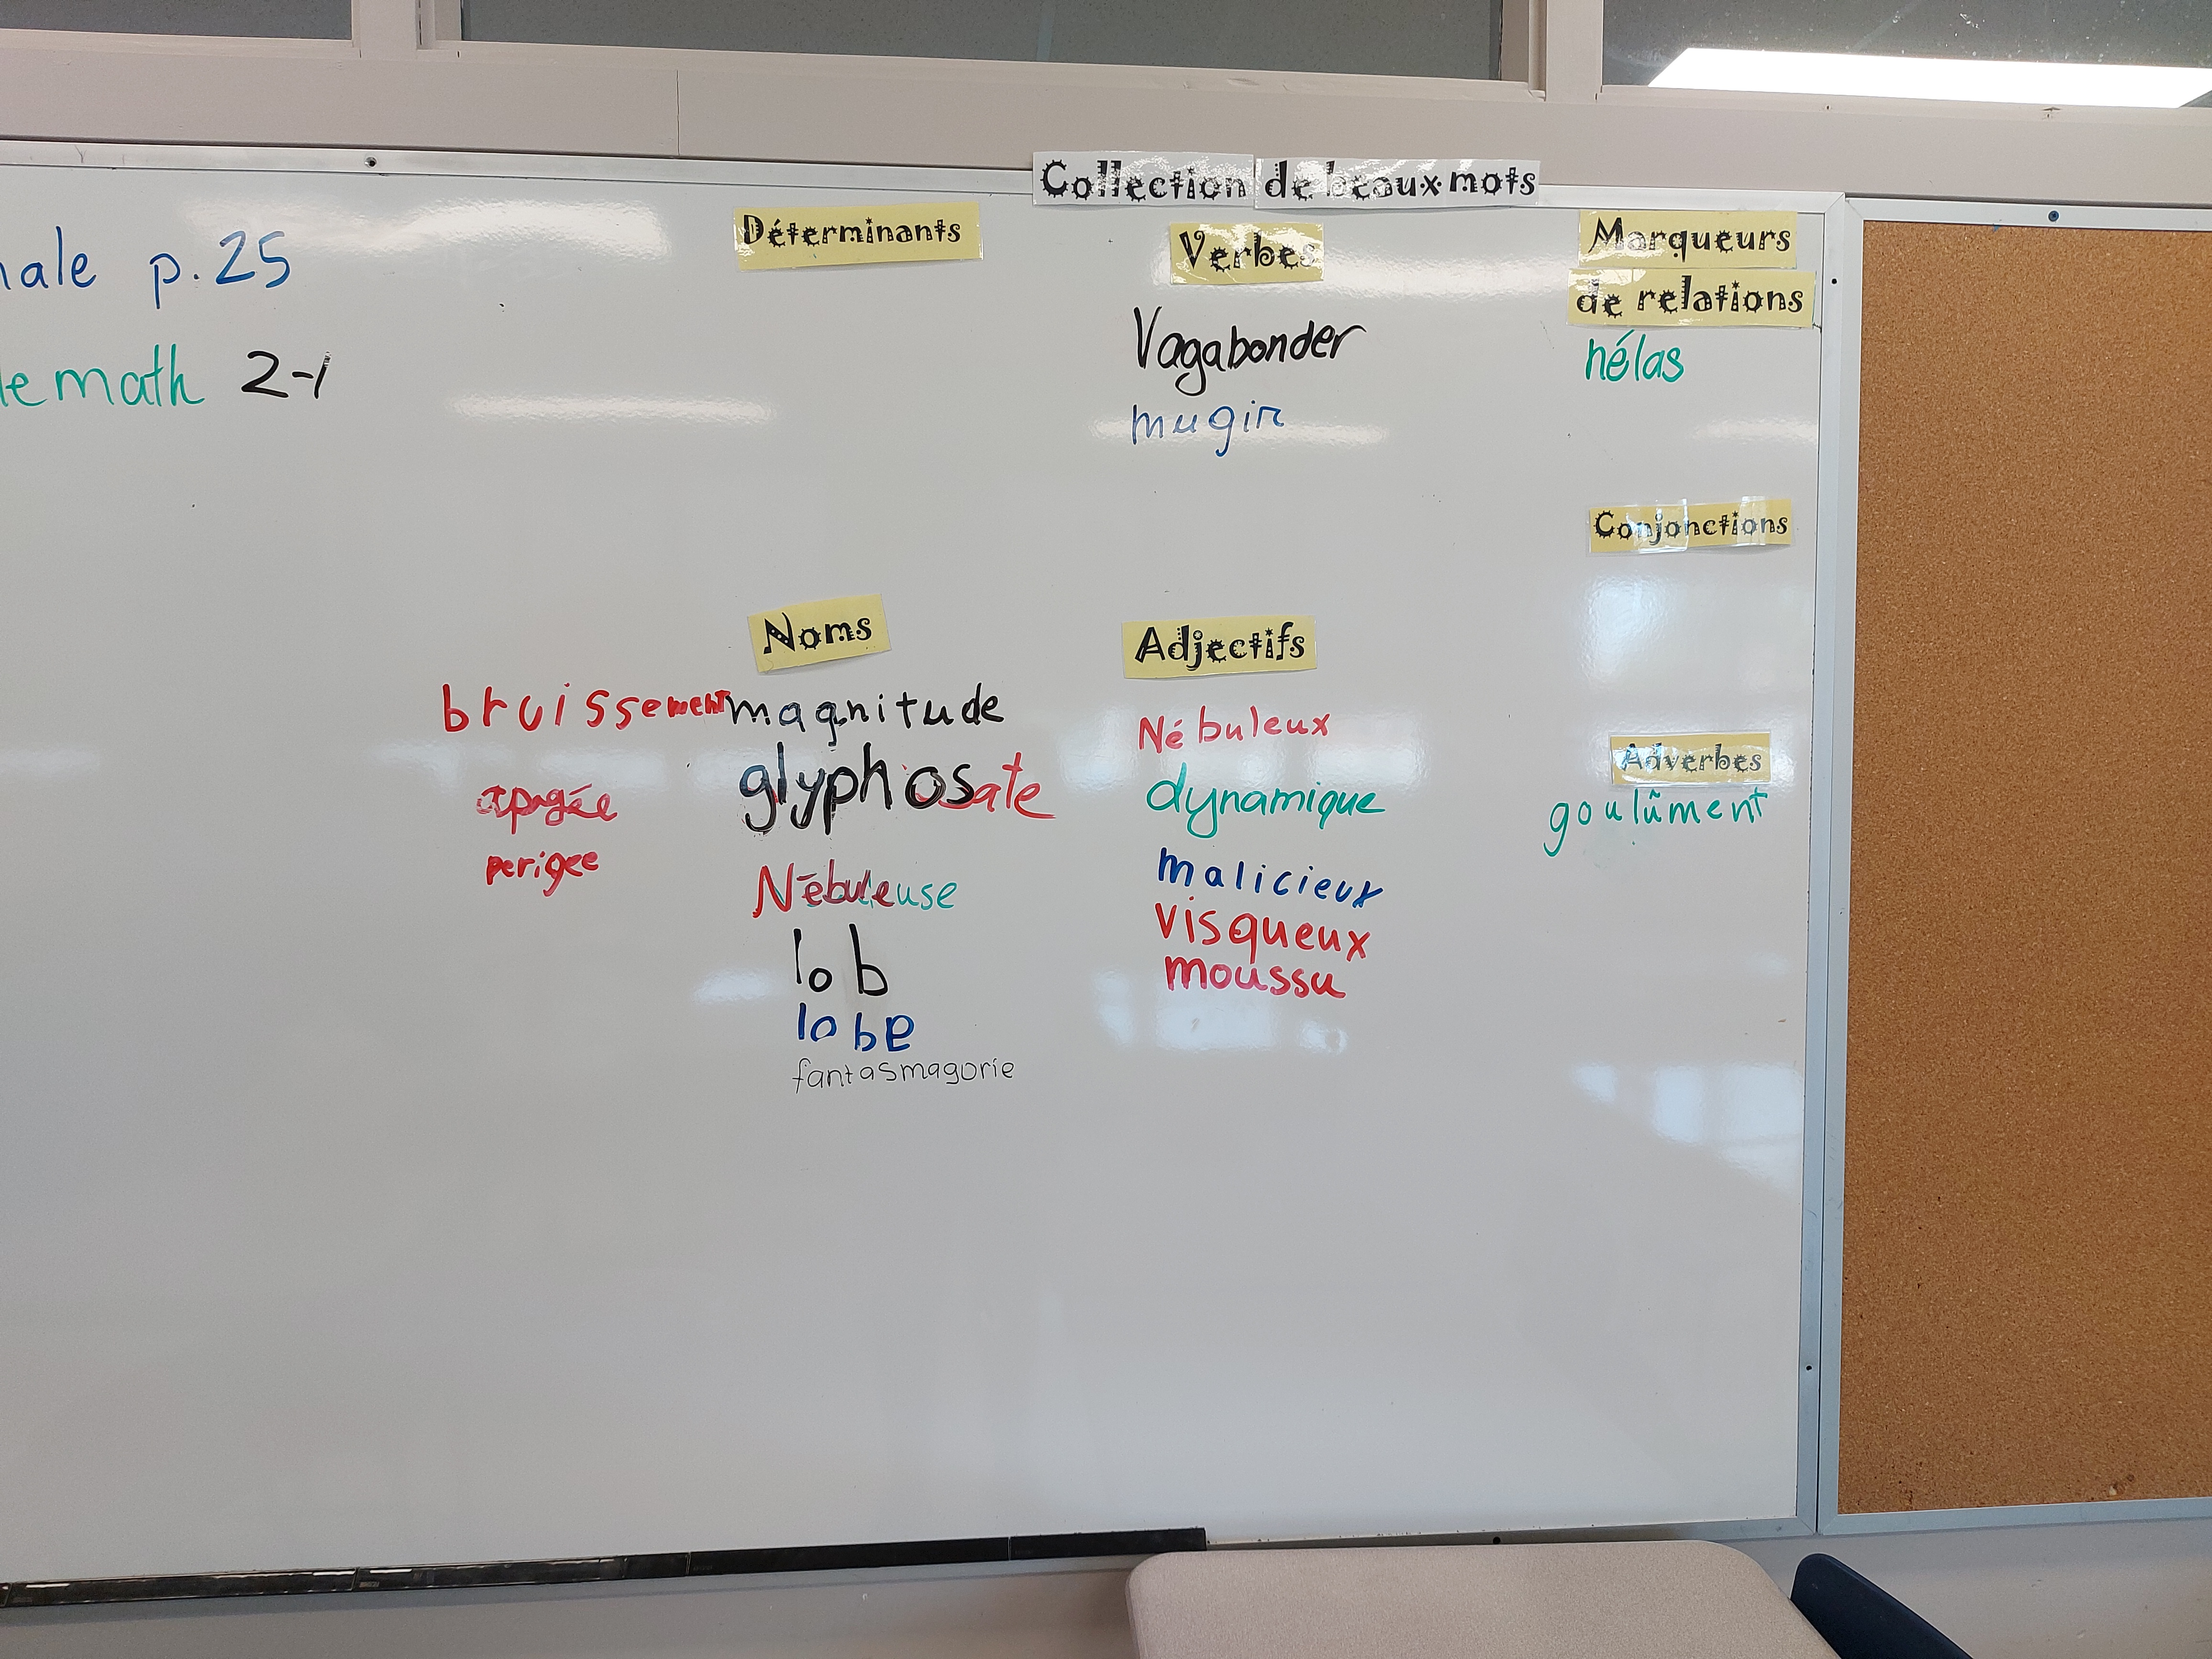 Collection de beaux mots
nale p.25
le math 2-1
Déterminants
Verbes
Vagabonder
mugir
Marqueurs
de relations
hélas
Conjonctions
Noms
bruissement magnitude
apogée glyphosate
perigee Nébuleuse
lob
lobe
fantasmagorie
Adjectifs
Nébuleux
dynamique
malicieux
visqueux
moussu
Adverbes
goulûment